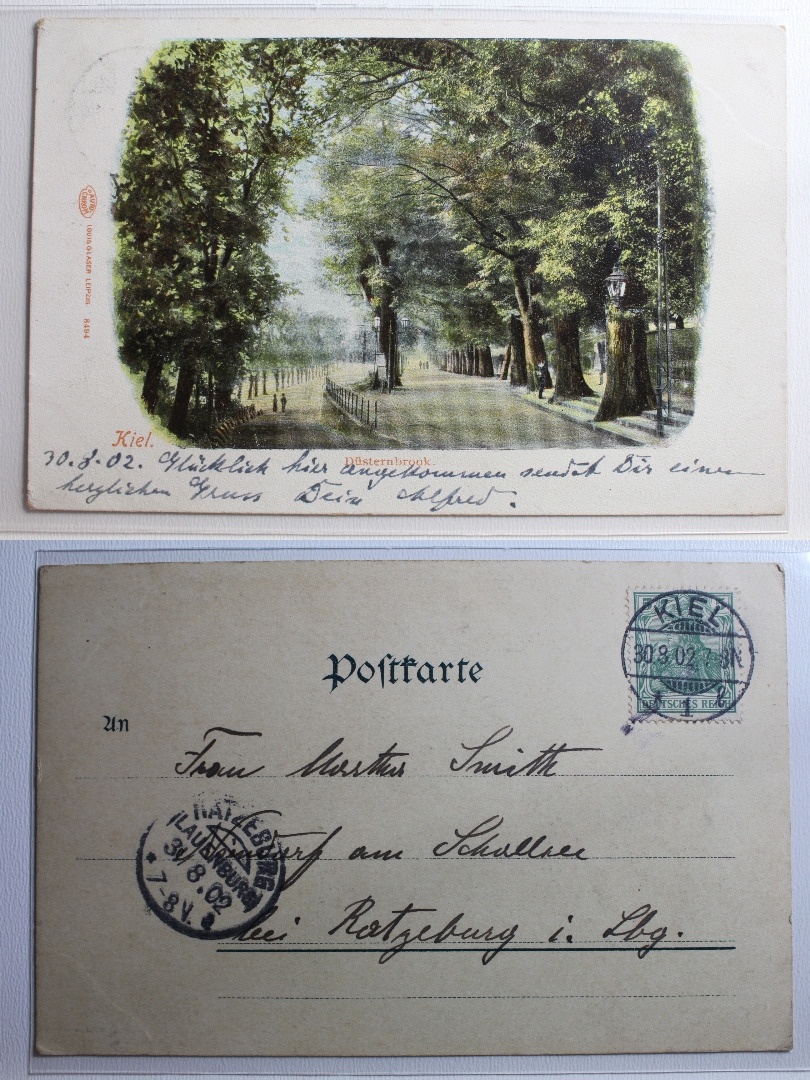 LOUIS GLASER LEIPZIG 8494
Kiel.
Düsternbrook.
30.8.02. Glücklich hier angekommen sendet Dir einen
herzlichen Gruss Dein Alfred.
Poſtkarte
KIEL
30.8.02 7-8N
1
DEUTSCHES REICH
An
Frau Martha Smith
am Schallsee
bei Ratzeburg i. Lbg.
RATZEBURG
(LAUENBURG)
31.8.02
7-8V.